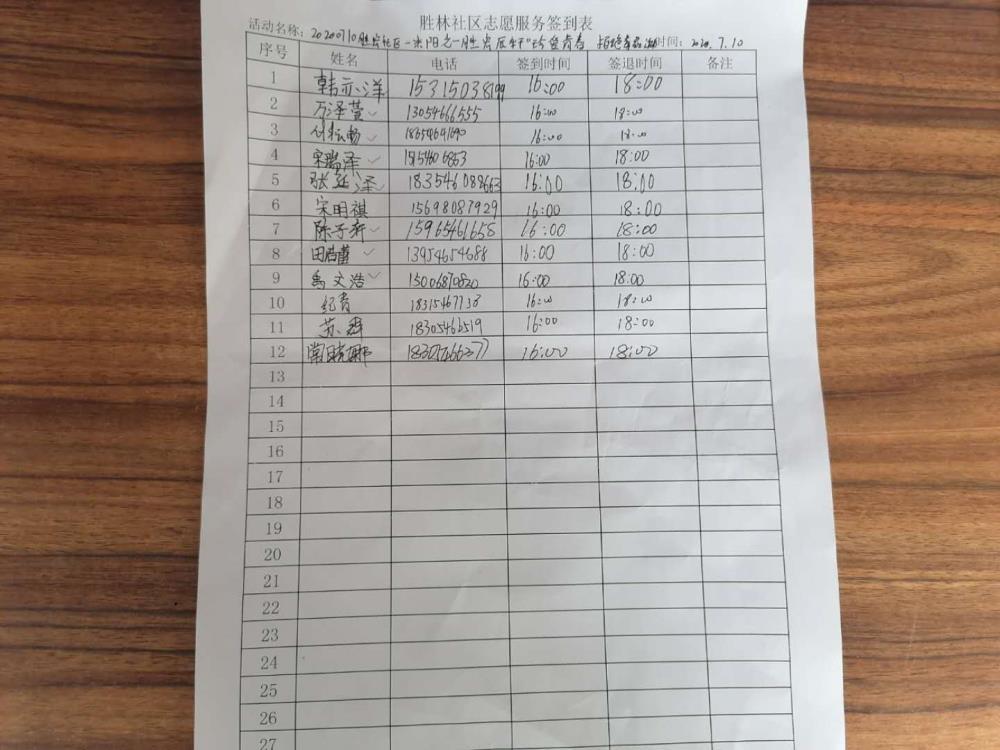 胜林社区志愿服务签到表
活动名称：20200710胜宏社区 时间：2020.7.10
序号 姓名 电话 签到时间 签退时间 备注
1 韩亦洋 15315038199 16:00 18:00
2 万泽萱 13054666555 16:00 18:00
3 付耘畅 18654641690 16:00 18:00
4 宋瑞泽 16:00 18:00
5 张延泽 183546088663 16:00 18:00
6 宋明祺 15698087929 16:00 18:00
7 陈子奔 15965461658 16:00 18:00
8 田皓蕾 13954654688 16:00 18:00
9 禹文浩 15006870820 16:00 18:00
10 纪青 18315467738 16:00 18:00
11 苏 18305466519 16:00 18:00
12 常晓娜 16:00 18:00
13
14
15
16
17
18
19
20
21
22
23
24
25
26
27